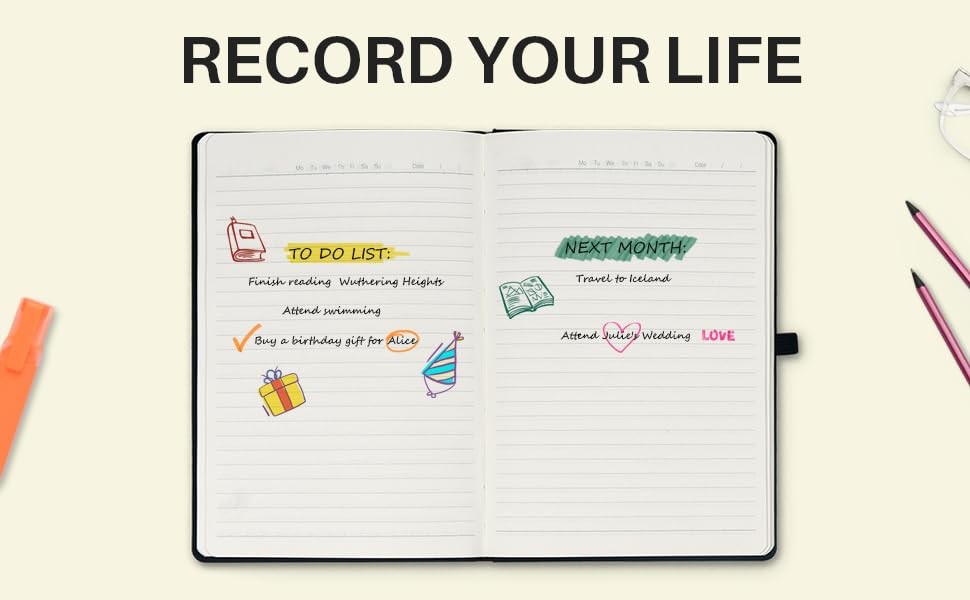 RECORD YOUR LIFE
Mo Tu We Th Fr Sa Su Date / /
TO DO LIST:
Finish reading Wuthering Heights
Attend swimming
Buy a birthday gift for Alice
Mo Tu We Th Fr Sa Su Date / /
NEXT MONTH:
Travel to Iceland
Attend Julie's Wedding LOVE